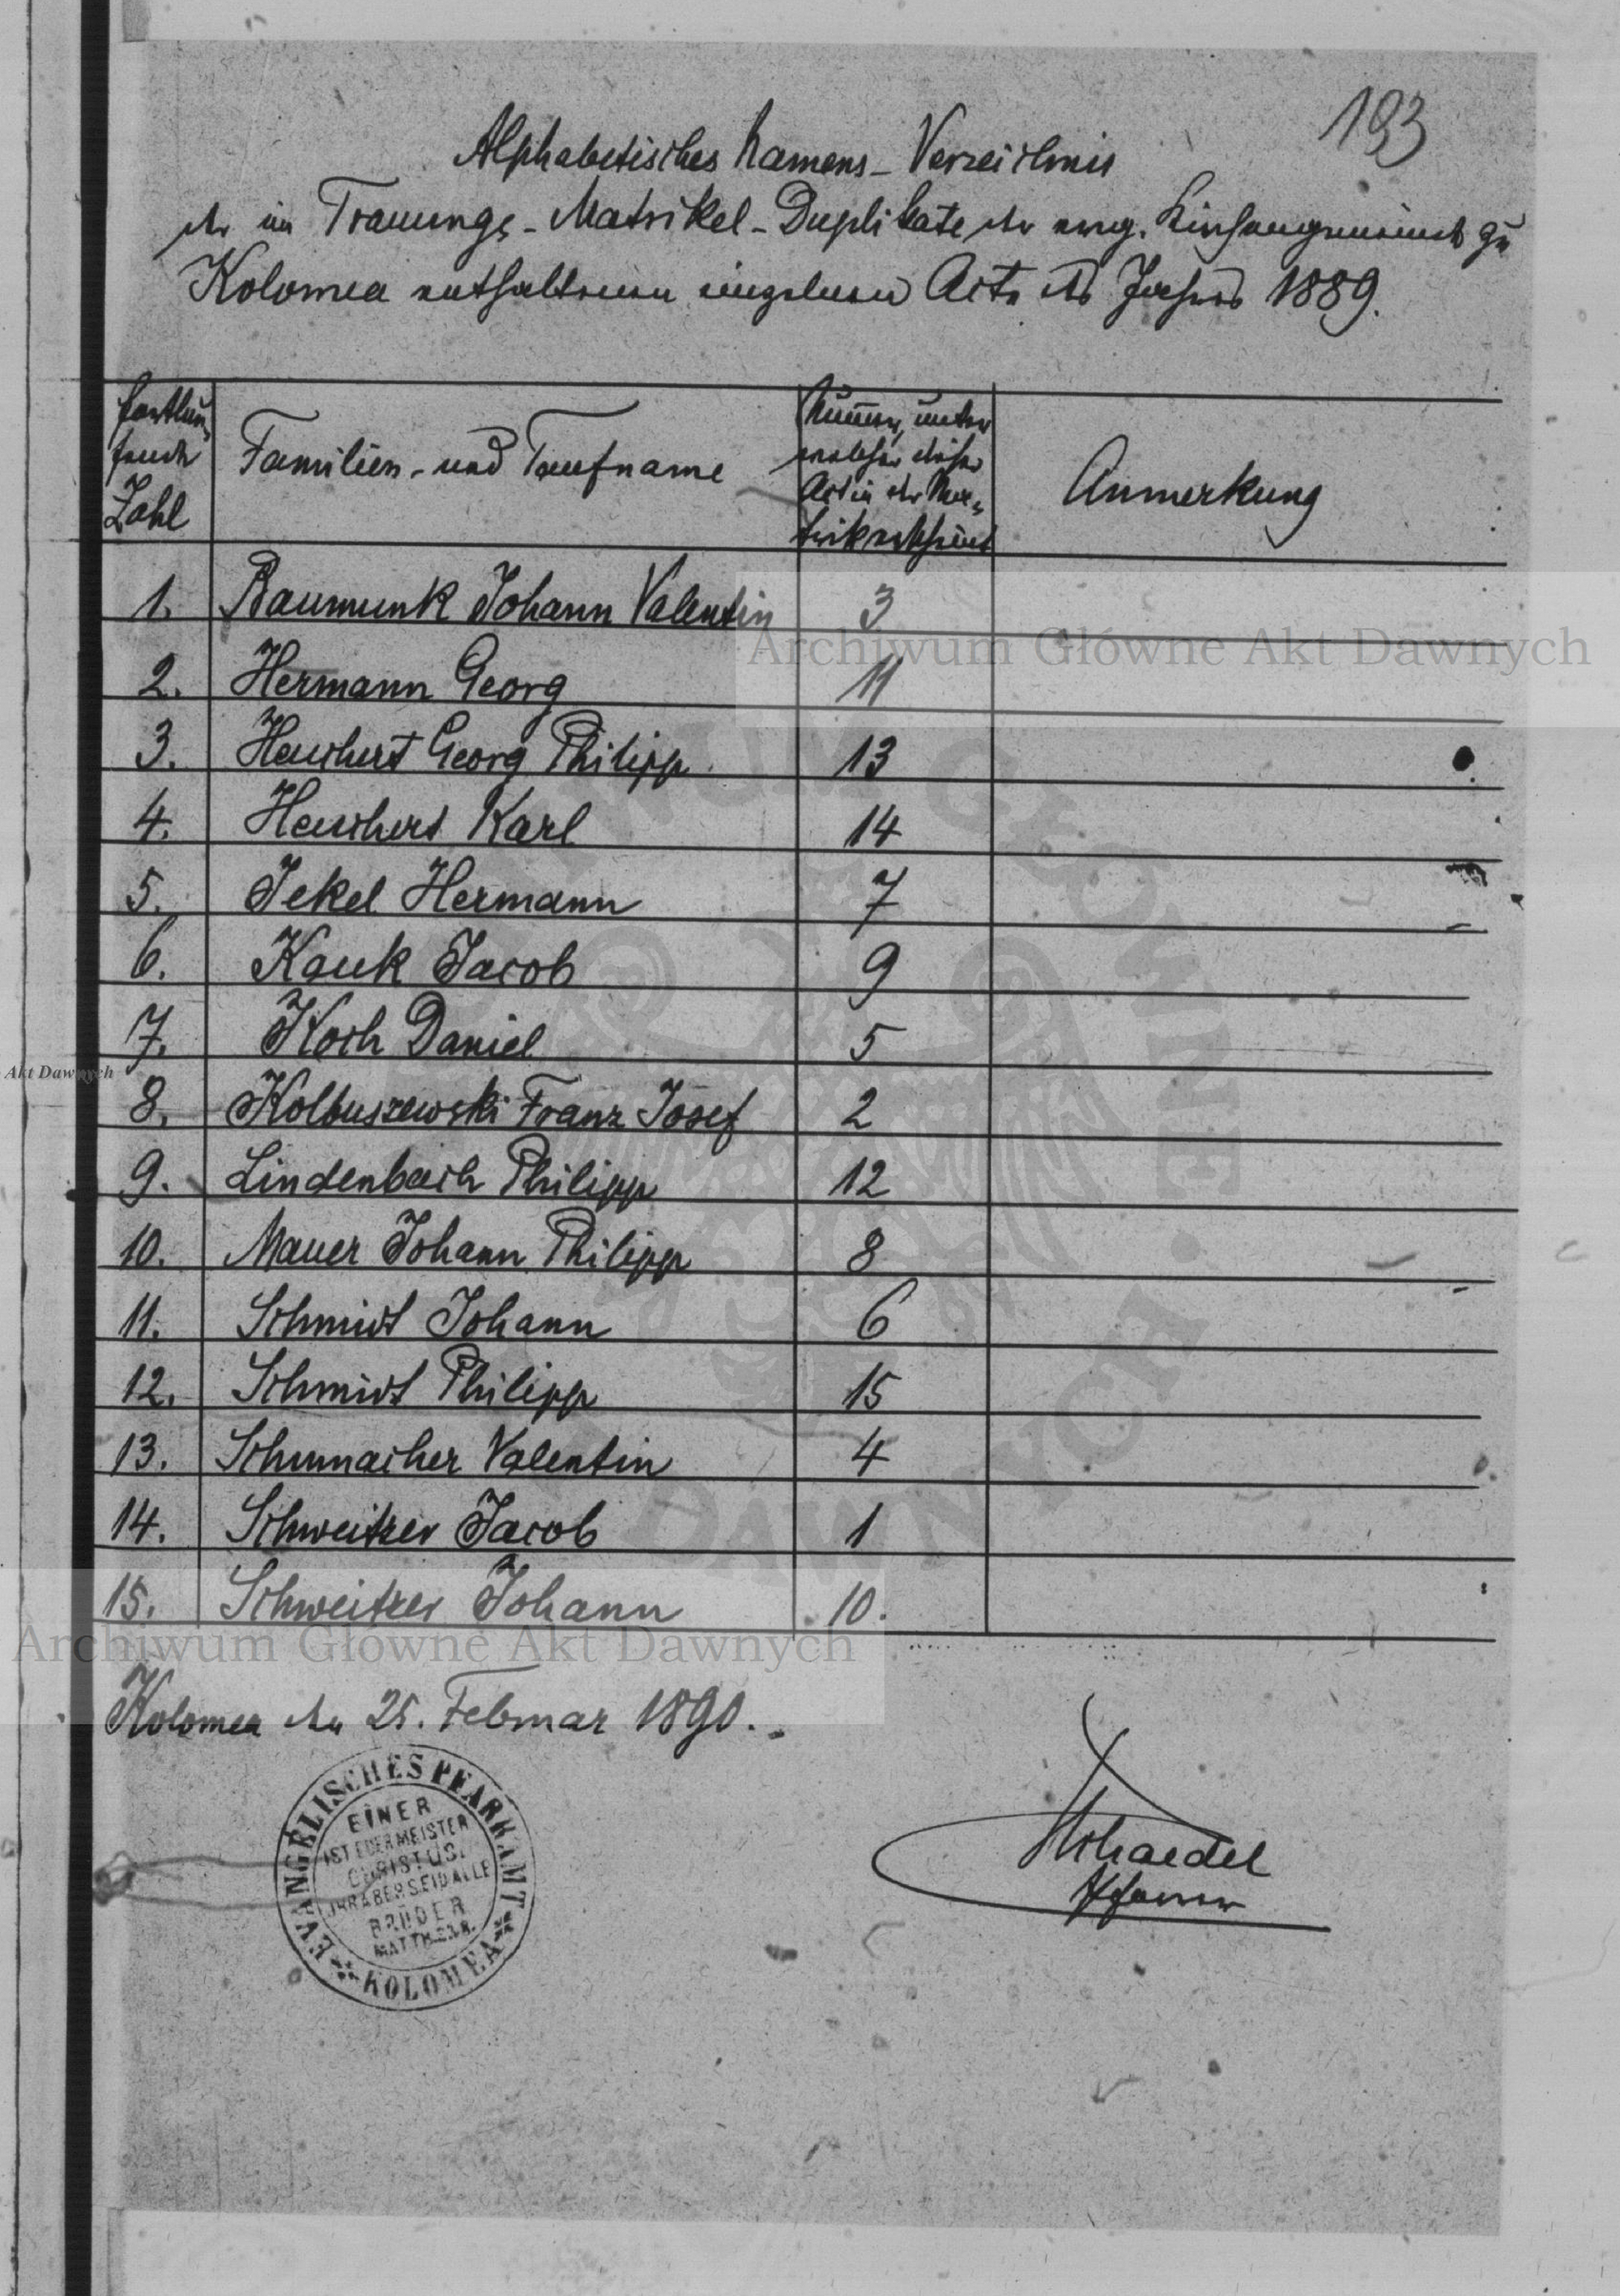 193
Alphabetisches Namens-Verzeichnis
der im Trauungs-Matrikel-Duplikate der evng. Kirchengemeinde zu
Kolomea enthaltenen einzelnen Acte des Jahres 1889.
Fortlau-
fende
Zahl
Familien- und Taufname
Nummer, unter
welcher dieser
Act in der Ma-
trik erscheint
Anmerkung
1. Baumunk Johann Valentin 3
Archiwum Główne Akt Dawnych
2. Hermann Georg 11
3. Heuchert Georg Philipp 13
4. Heuchert Karl 14
5. Jekel Hermann 7
6. Kauk Jacob 9
7. Koch Daniel 5
Akt Dawnych
8. Kolbuszewski Franz Josef 2
9. Lindenbach Philipp 12
10. Mauer Johann Philipp 8
11. Schmidt Johann 6
12. Schmidt Philipp 15
13. Schumacher Valentin 4
14. Schweitzer Jacob 1
15. Schweitzer Johann 10.
Archiwum Główne Akt Dawnych
Kolomea den 25. Februar 1890.
EVANGELISCHES PFARRAMT
KOLOMEA
EINER
IST EUER MEISTER
CHRISTUS,
IHR ABER SEID ALLE
BRÜDER
MATTH. 23.8.
Pfarrer